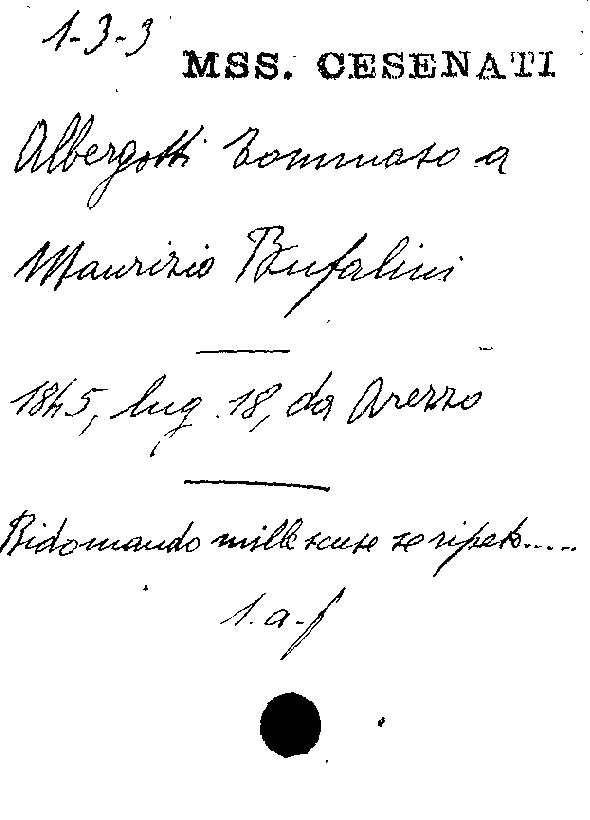 1-3-3
MSS. CESENATI
Albergotti Tommaso a
Maurizio Bufalini
1845, lug. 18, da Arezzo
Ridomando mille scuse se ripeto.....
1. a. f